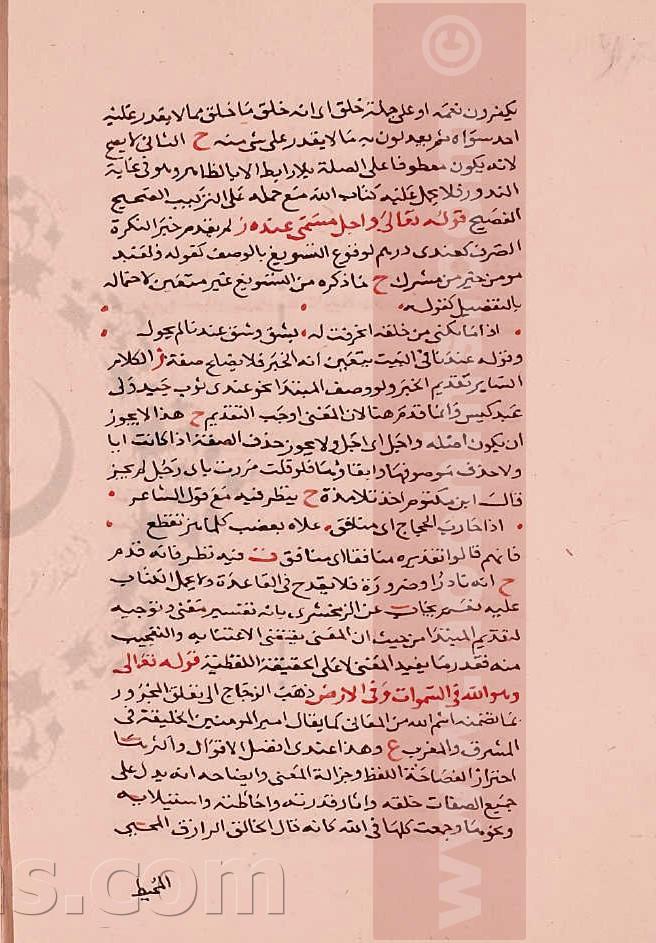 يكفرون نعمه او على جملة خلق اى انه خلق ما خلق مما لا يقدر عليه
احد سواه ثم يعدلون به ما لا يقدر على شئ منه ح الثانى لا يصح
لانه يكون معطوفا على الصلة بلا رابط الا بالظاهر وهو فى غاية
الندور فلا يحمل عليه كتاب الله مع حمله على التركيب الصحيح
الفصيح قوله تعالى واجل مسمى عنده ز لم يقدم خبر النكرة
الصرف كعندى درهم لوقوع التسويغ بالوصف كقوله ولعبد
مومن خير من مشرك ح ما ذكره من التسويغ غير متعين لاحتماله
بالتفصيل كقوله
اذا ما بكى من خلفه انحرفت له بشق وشق عندنا لم يحول
وقوله عندنا فى البيت يتعين انه الخبر فلا يصلح صفة ز الكلام
الساير تقديم الخبر ولو وصف المبتدا نحو عندى ثوب جيد ولى
عبد كيس وانما قدم هنا لان المعنى اوجب التقديم ح هذا لا يجوز
ان يكون اصله واجل اى اجل ولا يجوز حذف الصفة اذا كانت ايا
ولا حذف موصوفها وابقاوها فلو قلت مررت باى رجل لم يجز
قال ابن مكتوم احد تلامذة ح ينظر فيه مع قول الشاعر
اذا حارب الحجاج اى منافق علاه بعضب كلما هز تقطع
فانهم قالوا تقديره منافقا اى منافق ف فيه نظر فانه قدم
ح انه نادر او ضرورة فلا يقدح فى القاعدة ولا يحمل الكتاب
عليه نعم يجاب عن الزمخشرى بانه تفسير معنى وتوجيه
لتقديم المبتدا من حيث ان المعنى يقتضى الاعتنا به والتعجيب
منه فقدر ما يفيد المعنى لا على الحقيقة اللفظية قوله تعالى
وهو الله فى السموات وفى الارض ذهب الزجاج الى تعلق المجرور
بما تضمنه اسم الله من المعانى كما يقال امير المومنين الخليفة فى
المشرق والمغرب ع وهذا عندى افضل الاقوال واكثرها
احتراز الفصاحة اللفظ وجزالة المعنى وايضاحه انه يدل على
جميع الصفات خلقه واثار قدرته واحاطته واستيلايه
ونحوها وجمعت كلها فى الله كانه قال الخالق الرازق المحيى
المحيط